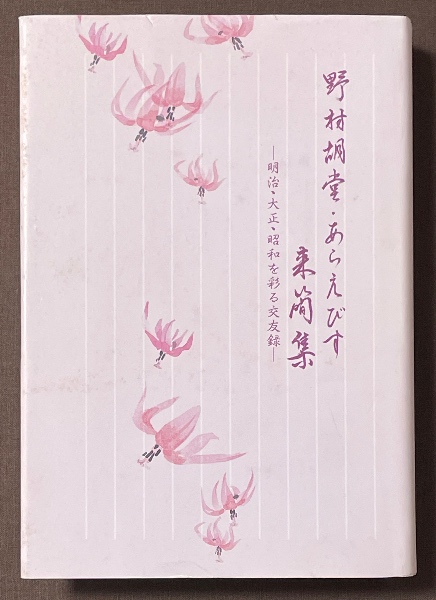 野村胡堂・あらえびす
来簡集
―明治、大正、昭和を彩る交友録―